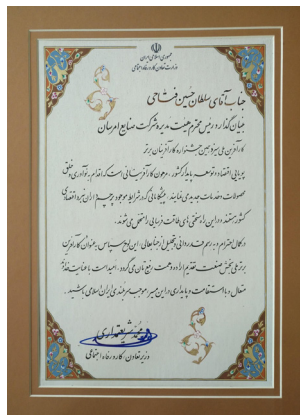 جمهوری اسلامی ایران
وزارت تعاون، کار و رفاه اجتماعی
جناب آقای سلطان حسین فتاحی
بنیان گذار و رئیس محترم هیئت مدیره شرکت صنایع امرسان
کارآفرین ملی سیزدهمین جشنواره کارآفرینان برتر
پویایی اقتصاد و توسعه پایدار کشور، مرهون کارآفرینانی است که اقدام به نوآوری و خلق
محصولات و خدمات جدید می نمایند، پیشگامانی که در شرایط موجود پرچم را از نبرد اقتصادی
کشور هستند و در این راه سختی های طاقت فرسایی را متحمل می شوند.
در کمال احترام و به رسم قدردانی و تجلیل از جنابعالی، این لوح سپاس به عنوان کارآفرین
برتر ملی بخش صنعت تقدیم اراده و همت رفیع تان می گردد. امید است با عنایت خداوند
متعال و با استقامت و پایداری در این مسیر موجب سربلندی ایران اسلامی باشید.
محمد شریعتمداری
وزیر تعاون، کار و رفاه اجتماعی